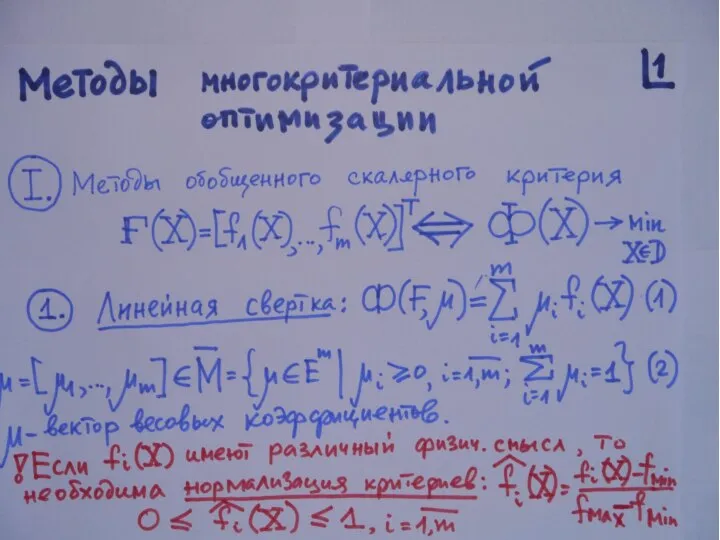 Методы многокритериальной 1
оптимизации
I. Методы обобщенного скалярного критерия
F(X)=[f₁(X),...,fₘ(X)]ᵀ ⟺ Ф(X) → min X∈D
1. Линейная свертка: Ф(F,μ)=∑ᵢ₌₁ᵐ μᵢfᵢ(X) (1)
μ=[μ₁,...,μₘ]∈M̅={μ∈Eᵐ| μᵢ≥0, i=1,m; ∑ᵢ₌₁ᵐ μᵢ=1} (2)
μ- вектор весовых коэффициентов.
! Если fᵢ(X) имеют различный физич. смысл, то
необходима нормализация критериев: f̂ᵢ(X)=(fᵢ(X)-fmin)/(fmax-fmin)
0 ≤ f̂ᵢ(X) ≤ 1, i=1,m